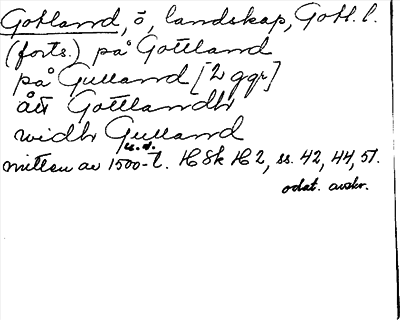 Gotland, ö, landskap, Gotl. l.
(forts.) på Gottland
på Gulland [2 ggr]
ått Gottlandh
widh Gulland
u.d.
mitten av 1500-t. HSk H 2, ss. 42, 44, 51.
odat. avskr.